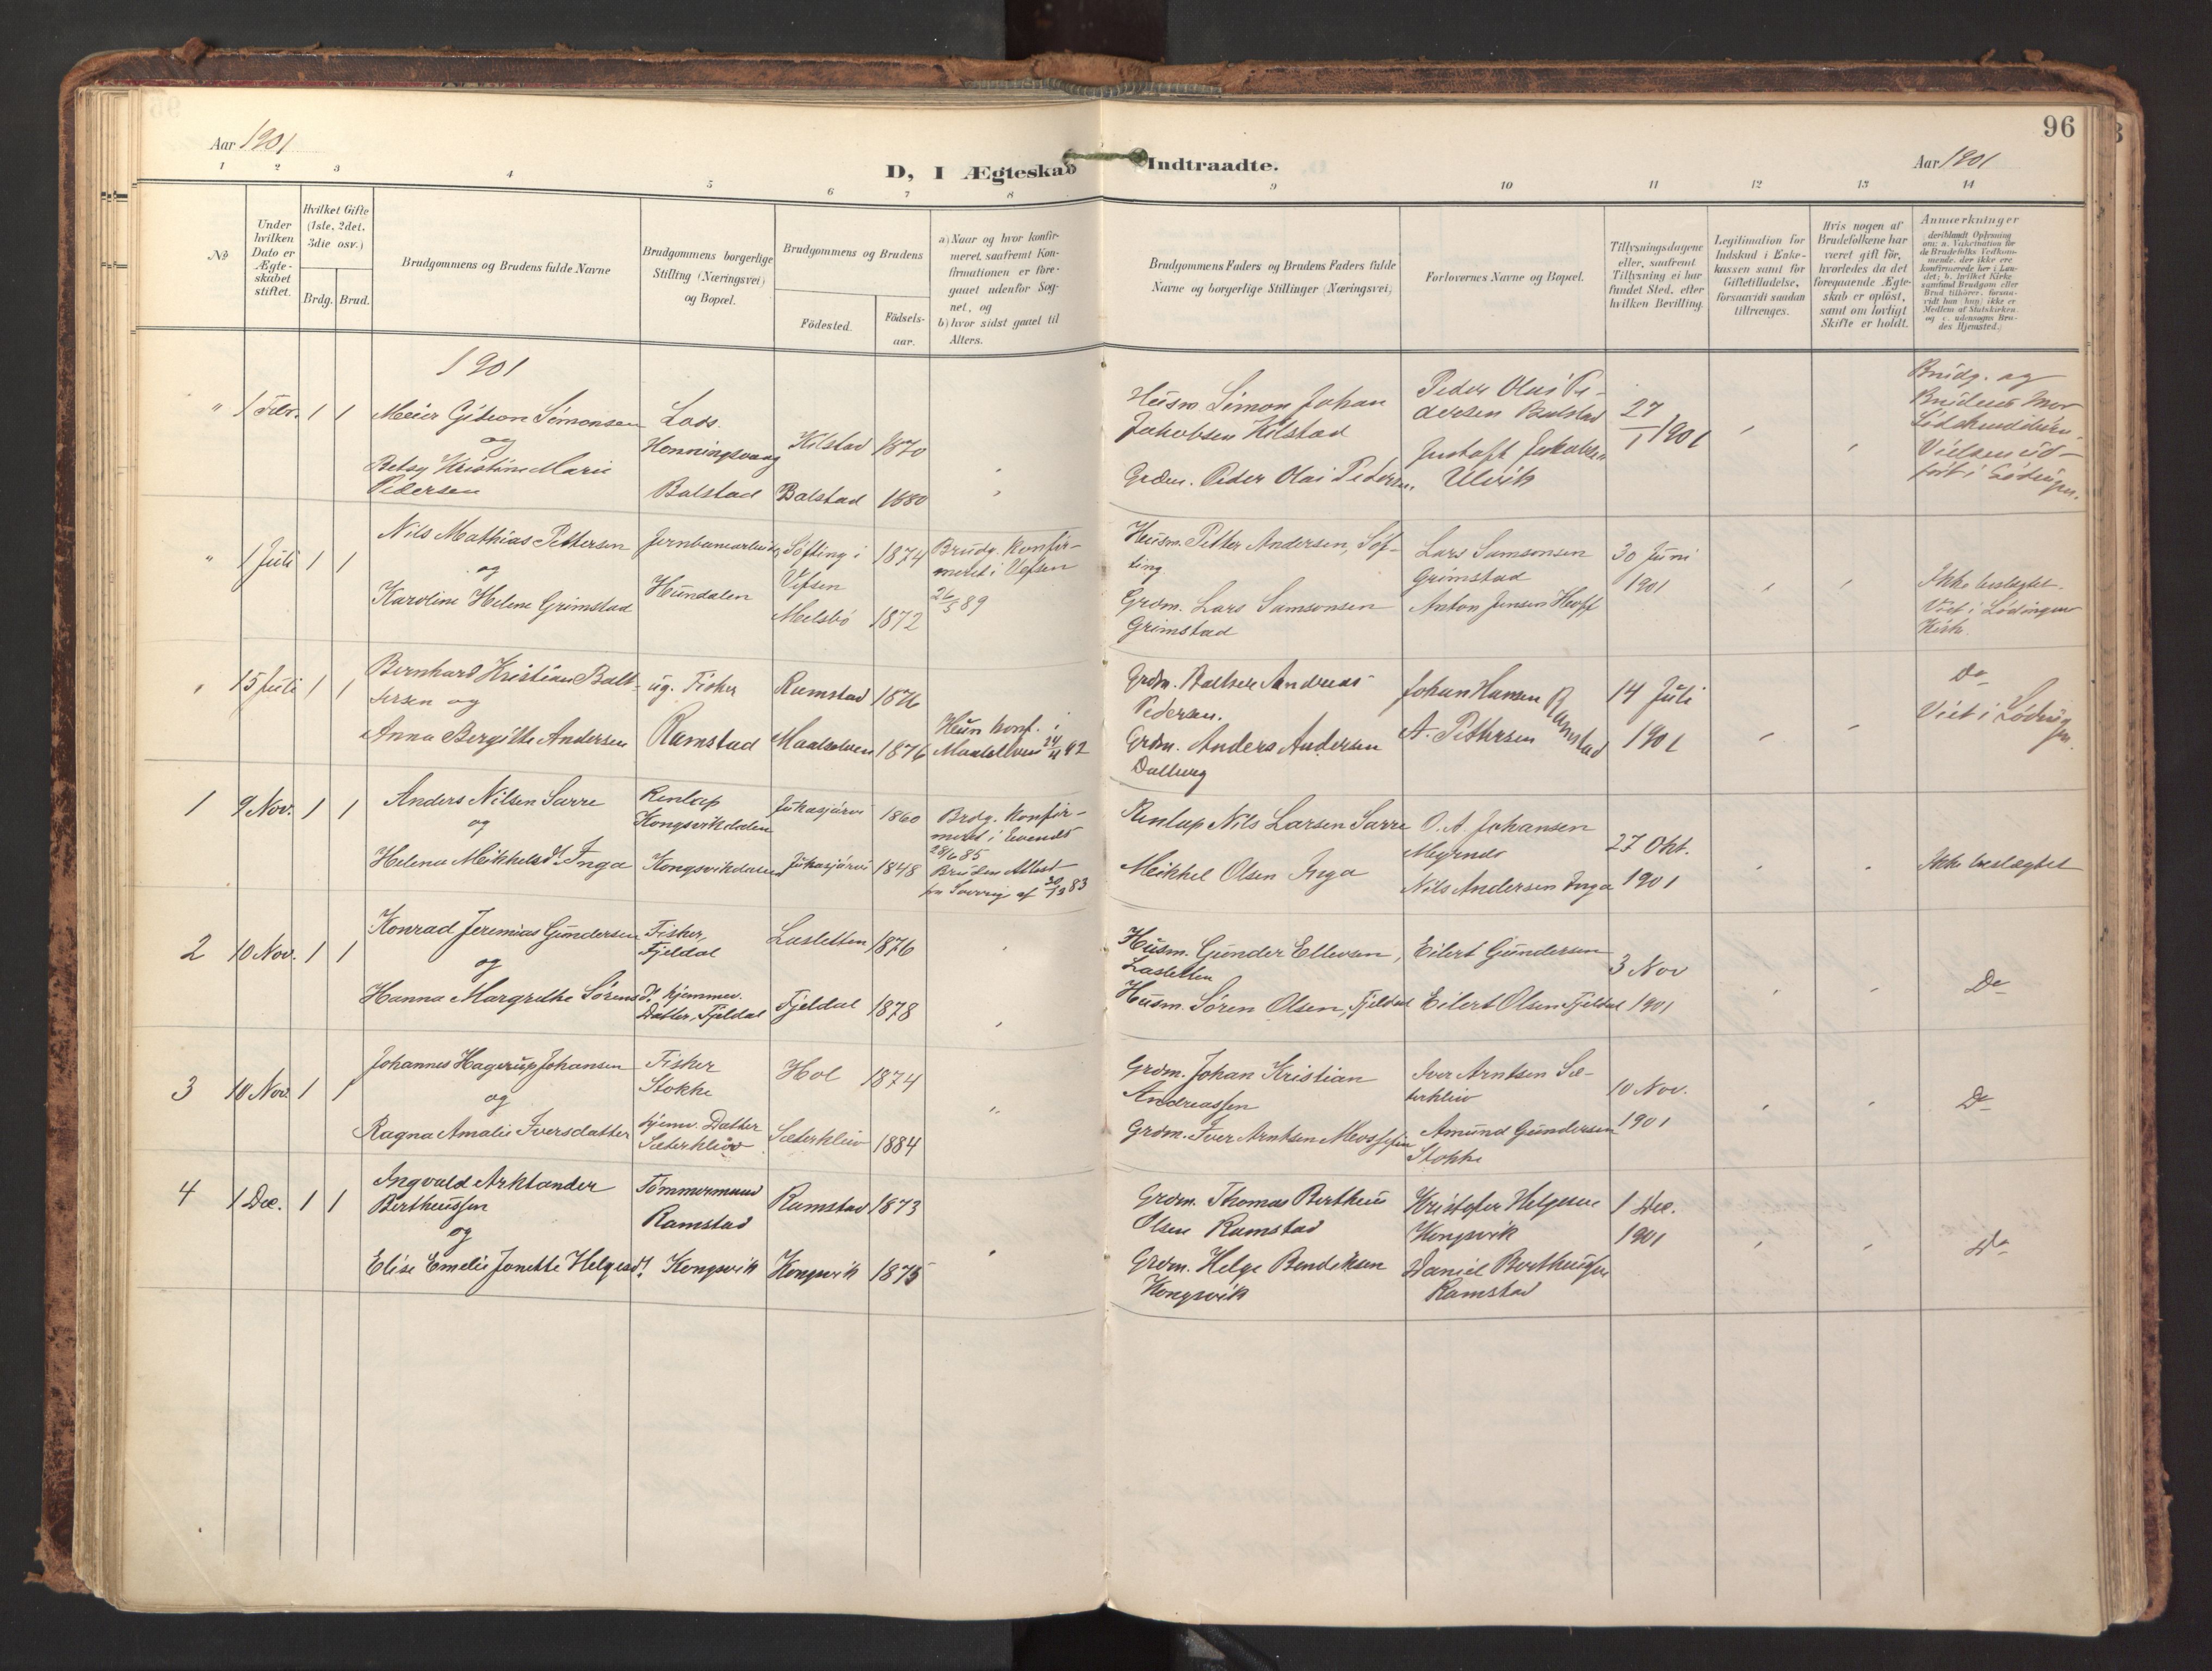 96
Aar 1901
D, I Ægteskab Indtraadte.
Aar 1901
1 2 3 4 5 6 7 8 9 10 11 12 13 14
No
Under hvilken Dato er Ægteskabet stiftet.
Hvilket Gifte (1ste, 2det, 3die osv.)
Brdg. Brud.
Brudgommens og Brudens fulde Navne
Brudgommens borgerlige Stilling (Næringsvei) og Bopæl.
Brudgommens og Brudens
Fødested.
Fødselsaar.
a) Naar og hvor konfirmeret, saafremt Konfirmationen er foregaaet udenfor Sognet, og
b) hvor sidst gaaet til Alters.
Brudgommens Faders og Brudens Faders fulde Navne og borgerlige Stillinger (Næringsvei)
Forlovernes Navne og Bopæl.
Tillysningsdagene eller, saafremt Tillysning ei har fundet Sted, efter hvilken Bevilling.
Legitimation for Indskud i Enkekassen samt for Giftetilladelse, forsaavidt saadan tiltrænges.
Hvis nogen af Brudefolkene har været gift før, hvorledes da det foregaaende Ægteskab er opløst, samt om lovligt Skifte er holdt.
Anmærkninger
deriblandt Oplysning om: a. Vakcination for de Brudefolks Vedkommende, der ikke ere konfirmerede her i Landet; b. hvilket Kirkesamfund Brudgom eller Brud tilhører, forsaavidt han (hun) ikke er Medlem af Statskirken, og c. udensogns Brudes Hjemsted.)
1901
" 1 Febr. 1 1
Meier Gideon Simonsen
og
Betsy Kristine Marie
Pedersen
Lods.
Henningsvaag
Balstad
Kilstad 1870
Balstad 1880
Husm. Simon Johan
Jakobsen Kilstad
Grdm. Peder Olai Pedersen
Peder Olai Pe-
dersen Balstad
Gustaft Jakobsen
Ulvik
27/1 1901
Brudg. og
Brudens Mor
Södskendebörn.
Vielsen ud-
fört i Lödingen.
" 1 Juli 1 1
Nils Mathias Pettersen
og
Karoline Helene Grimstad
Jernbanearbeider
Hundalen
Söfting i
Vefsen
Melsbö
1874
1872
Brudg. konfir-
meret i Vefsen
26/5 89
Husm. Petter Andersen, Söf-
ting
Grdm. Lars Samsonsen
Grimstad
Lars Samsonsen
Grimstad
Anton Jensen Hoff
30 Juni
1901
Ikke beslægtet.
Viet i Lödingen
Kirke.
" 15 Juli 1 1
Bernhard Kristian Balt-
sersen og
Anna Bergitte Andersen
ug. Fisker
Ramstad
Ramstad 1876
Maalselven 1876
Hun konf.
Maalselven 92
Grdm. Baltser Andreas
Pedersen.
Grdm. Anders Andersen
Dalberg
Johan Hansen
A. Pettersen
Ramstad
14 Juli
1901
Do
Viet i Lödingen.
1 9 Nov. 1 1
Anders Nilsen Sarre
og
Helena Meikkelsdt. Inga
Renlap
Kongsvikdalen
Kongsvikdalen
Jukasjärvi 1860
Jukasjärvi 1848
Brdg. konfir-
meret i Evenes
28/6 85
Bruden Attest
fra Sverrig af 83
Renlap Nils Larsen Sarre
Meikkel Olsen Inga
O. A. Johansen
Nils Andersen Inga
27 Okt.
1901
Ikke beslægtet
2 10 Nov. 1 1
Konrad Jeremias Gundersen
og
Hanna Margrethe Sörensdt.
Fisker,
Fjeldal
hjemmev.
Datter, Fjeldal
Lasletten 1876
Fjeldal 1878
Husm. Gunder Ellevsen,
Lasletten
Husm. Sören Olsen, Fjeldal
Eilert Gundersen
Eilert Olsen Fjeldal
3 Nov
1901
Do
3 10 Nov. 1 1
Johannes Hagerup Johansen
og
Ragna Amalie Iversdatter
Fisker
Stokke
hjemv. Datter
Sæterkleiv
Hol 1874
Sæterkleiv 1884
Grdm. Johan Kristian
Andreassen
Grdm. Iver Arntsen
Iver Arntsen Sæ-
terkleiv
Amund Gundersen
Stokke
10 Nov.
1901
Do
4 1 Dec. 1 1
Ingvald Arktander
Bertheussen
og
Elise Emelie Jonette Helgesdt.
Tömmermand
Ramstad
Kongsvik
Ramstad 1873
Kongsvik 1875
Grdm. Thomas Bertheus
Olsen Ramstad
Grdm. Helge Bendiksen
Kongsvik
Kristofer Helgesen
Kongsvik
Daniel Bertheussen
Ramstad
1 Dec.
1901
Do